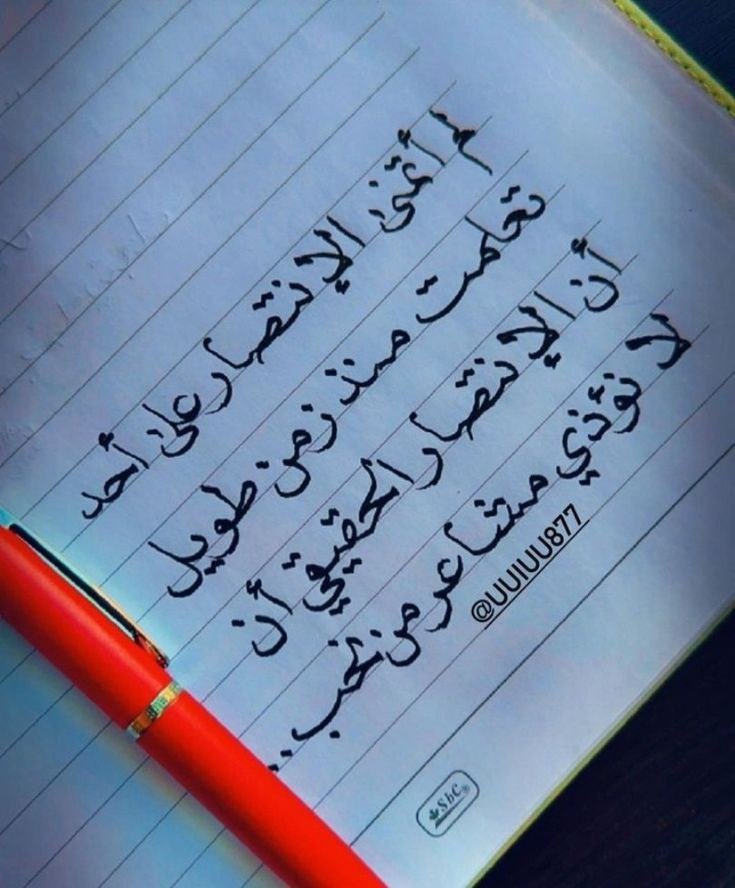 لم أتمنى الإنتصار على أحد
تعلمت منذ زمن طويل
أن الإنتصار الحقيقي أن
لا نؤذي مشاعر من نحب..
@UUIUU877
SbC